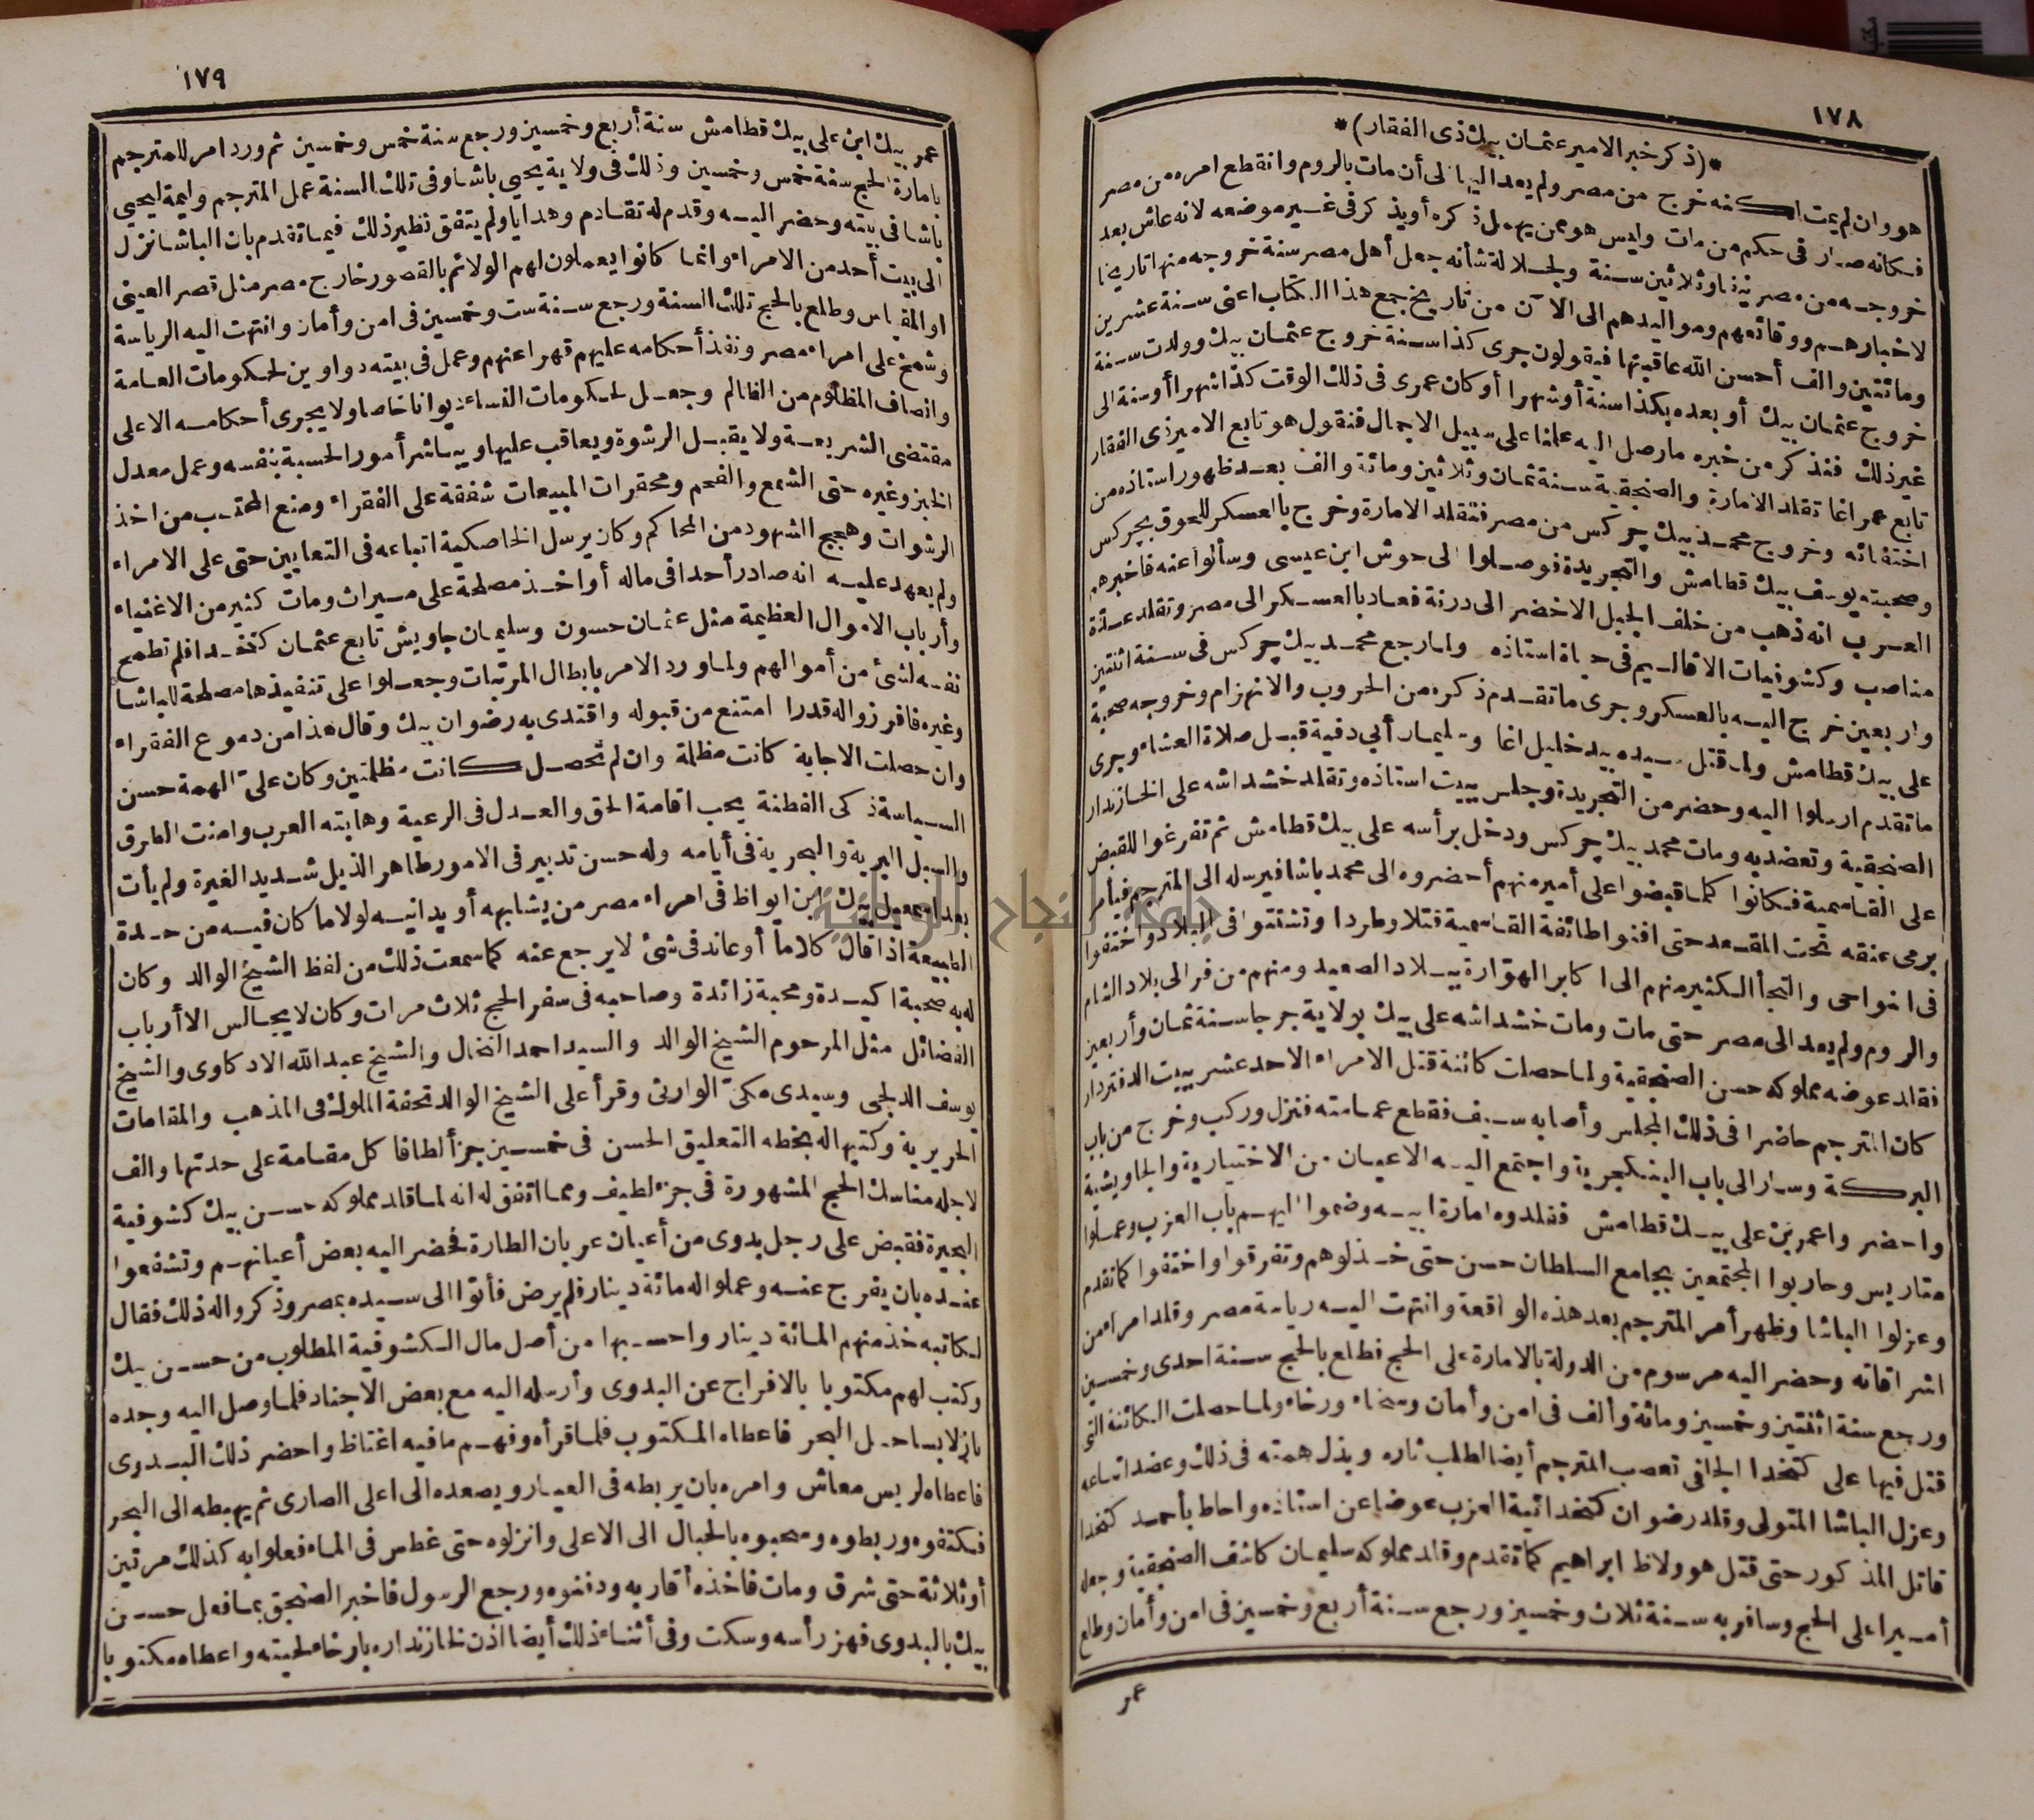 ١٧٨
*(ذكر خبر الامير عثمان بيك ذى الفقار)*
هو وان لم يمت لكنه خرج من مصر ولم يعد اليها الى أن مات بالروم وانقطع امره من مصر
فكانه صار فى حكم من مات وليس هو ممن يهمل ذكره أو يذكر فى غير موضعه لانه عاش بعد
خروجه من مصر نيفا وثلاثين سنة ولجلالة شأنه جعل أهل مصر سنة خروجه منها تاريخا
لاخبارهم ووقائعهم ومواليدهم الى الآن من تاريخ جمع هذا الكتاب اعنى سنة عشرين
ومائتين والف أحسن الله عاقبتها فيقولون جرى كذا سنة خروج عثمان بيك وولدت سنة
خروج عثمان بيك أو بعده بكذا سنة أو شهرا أو كان عمرى فى ذلك الوقت كذا شهرا أو سنة الى
غير ذلك فنذكر من خبره ما وصل اليه علمنا على سبيل الاجمال فنقول هو تابع الامير ذى الفقار
تابع عمر اغا تقلد الامارة والصنجقية سنة ثمان وثلاثين ومائة والف بعد ظهور استاذه من
اختفائه وخروج محمد بيك چركس من مصر فتقلد الامارة وخرج بالعسكر للحوق بچركس
وصحبته يوسف بيك قطامش والتجريدة فوصلوا الى حوش ابن عيسى وسألوا عنه فاخبرهم
العرب انه ذهب من خلف الجبل الاخضر الى درنة فعاد بالعسكر الى مصر وتقلد عدة
مناصب وكشوفيات الاقاليم فى حياة استاذه ولما رجع محمد بيك چركس فى سنة اثنتين
واربعين خرج اليه بالعسكر وجرى ما تقدم ذكره من الحروب والانهزام وخروجه صحبة
على بيك قطامش ولما قتل سيده بيد خليل اغا وسليمان أبى دفية قبل صلاة العشاء وجرى
ما تقدم ارسلوا اليه وحضر من التجريدة وجلس ببيت استاذه وتقلد خشداشه على الخازندار
الصنجقية وتعضد به ومات محمد بيك چركس ودخل برأسه على بيك قطامش ثم تفرغوا للقبض
على القاسمية فكانوا كلما قبضوا على أمير منهم أحضروه الى محمد باشا فيرسله الى المترجم فيأمر
برمى عنقه تحت المقعد حتى افنوا طائفة القاسمية قتلا وطردا وتشتتوا فى البلاد واختفوا
فى النواحى والتجأ الكثير منهم الى اكابر الهوارة ببلاد الصعيد ومنهم من فر الى بلاد الشام
والروم ولم يعد الى مصر حتى مات ومات خشداشه على بيك بولاية جرجا سنة ثمان وأربعين
فقلد عوضه مملوكه حسن الصنجقية ولما حصلت كائنة قتل الامراء الاحد عشر ببيت الدفتردار
كان المترجم حاضرا فى ذلك المجلس وأصابه سيف فقطع عمامته فنزل وركب وخرج من باب
البركة وسار الى باب الينكجرية واجتمع اليه الاعيان من الاختيارية والجاويشية
واحضروا عمر بن على بيك قطامش فقلدوه امارة ابيه وضموا اليهم باب العزب وعملوا
متاريس وحاربوا المجتمعين بجامع السلطان حسن حتى خذلوهم وتفرقوا واختفوا كما تقدم
وعزلوا الباشا وظهر أمر المترجم بعد هذه الواقعة وانتهت اليه رياسة مصر وقلد امراء من
اشراقاته وحضر اليه مرسوم من الدولة بالامارة على الحج فطلع بالحج سنة احدى وخمسين
ورجع سنة اثنتين وخمسين ومائة وألف فى امن وأمان وسخاء ورخاء ولما حصلت الكائنة التى
قتل فيها على كتخدا الجلفى تعصب المترجم أيضا لطلب ثاره وبذل همته فى ذلك وعضد اتباعه
وعزل الباشا المتولى وقلد رضوان كتخدائية العزب عوضا عن استاذه واحاط بأحمد كتخدا
قاتل المذكور حتى قتل هو ولاظ ابراهيم كما تقدم وقلد مملوكه سليمان كاشف الصنجقية وجعله
أميرا على الحج وسافر به سنة ثلاث وخمسين ورجع سنة أربع وخمسين فى امن وأمان وطلع
عمر
١٧٩
عمر بيك ابن على بيك قطامش سنة أربع وخمسين ورجع سنة خمس وخمسين ثم ورد امر للمترجم
بامارة الحج سنة خمس وخمسين وذلك فى ولاية يحيى باشا وفى تلك السنة عمل المترجم وليمة ليحيى
باشا فى بيته وحضر اليه وقدم له تقادم وهدايا ولم يتفق نظير ذلك فيما تقدم بان الباشا نزل
الى بيت أحد من الامراء وانما كانوا يعملون لهم الولائم بالقصور خارج مصر مثل قصر العينى
او المقياس وطلع بالحج تلك السنة ورجع سنة ست وخمسين فى امن وأمان وانتهت اليه الرياسة
وشمخ على امراء مصر ونفذ أحكامه عليهم قهرا عنهم وعمل فى بيته دواوين لحكومات العامة
وانصاف المظلوم من الظالم وجعل لحكومات النساء ديوانا خاصا ولا يجرى أحكامه الا على
مقتضى الشريعة ولا يقبل الرشوة ويعاقب عليها ويباشر أمور الحسبة بنفسه وعمل معدل
الخبز وغيره حتى الشمع والفحم ومحقرات المبيعات شفقة على الفقراء ومنع المحتسب من اخذ
الرشوات وهجج الشهود من المحاكم وكان يرسل الخاصكية اتباعه فى التعابين حتى على الامراء
ولم يعهد عليه انه صادر أحدا فى ماله أو اخذ مصلحة على ميراث ومات كثير من الاغنياء
وأرباب الاموال العظيمة مثل عثمان حسون وسليمان جاويش تابع عثمان كتخدا فلم تطمح
نفسه لشئ من أموالهم ولما ورد الامر بابطال المرتبات وجعلوا على تنفيذها مصلحة للباشا
وغيره فافرزوا له قدرا امتنع من قبوله واقتدى به رضوان بيك وقال هذا من دموع الفقراء
وان حصلت الاجابة كانت مظلمة وان لم تحصل كانت مظلمتين وكان على الهمة حسن
السياسة ذكى الفطنة يحب اقامة الحق والعدل فى الرعية وهابته العرب وامنت الطرق
والسبل البرية والبحرية فى أيامه وله حسن تدبير فى الامور طاهر الذيل شديد الغيرة ولم يأت
بعد اسمعيل بيك ابن ايواظ فى امراء مصر من يشابهه أو يدانيه لولا ما كان فيه من حدة
الطبيعة اذا قال كلاما أو عاند فى شئ لا يرجع عنه كما سمعت ذلك من لفظ الشيخ الوالد وكان
له به صحبة اكيدة ومحبة زائدة وصاحبه فى سفر الحج ثلاث مرات وكان لا يجالس الا أرباب
الفضائل مثل المرحوم الشيخ الوالد والسيد احمد النخال والشيخ عبد الله الادكاوى والشيخ
يوسف الدلجى وسيدى مكى الوارثى وقرأ على الشيخ الوالد تحفة الملوك فى المذهب والمقامات
الحريرية وكتبها له بخطه التعليق الحسن فى خمسين جزأ لطافا كل مقامة على حدتها والف
لاجله مناسك الحج المشهورة فى جزء لطيف ومما اتفق له انه لما قلد مملوكه حسن بيك كشوفية
البحيرة فقبض على رجل بدوى من أعيان عربان الطارة فحضر اليه بعض أعيانهم وتشفعوا
عنده بان يفرج عنه وعملوا له مائة دينار فلم يرض فأتوا الى سيده بمصر وذكروا له ذلك فقال
لكاتبه خذ منهم المائة دينار واحسبها من أصل مال الكشوفية المطلوب من حسن بيك
وكتب لهم مكتوبا بالافراج عن البدوى وأرسله اليه مع بعض الاجناد فلما وصل اليه وجده
نازلا بساحل البحر فاعطاه المكتوب فلما قرأه وفهم ما فيه اغتاظ واحضر ذلك البدوى
فاعطاه لريس معاش وامره بان يربطه فى العيار ويصعده الى اعلى الصارى ثم يهبطه الى البحر
فكتفوه وربطوه وسحبوه بالحبال الى الاعلى وانزلوه حتى غطس فى الماء فعلوا به كذلك مرتين
أو ثلاثة حتى شرق ومات فاخذه أقاربه ودفنوه ورجع الرسول فاخبر الصنجق بما فعل حسن
بيك بالبدوى فهز رأسه وسكت وفى أثناء ذلك أيضا اذن لخازنداره بارخاء لحيته واعطاه مكتوبا
جامعة النجاح الوطنية